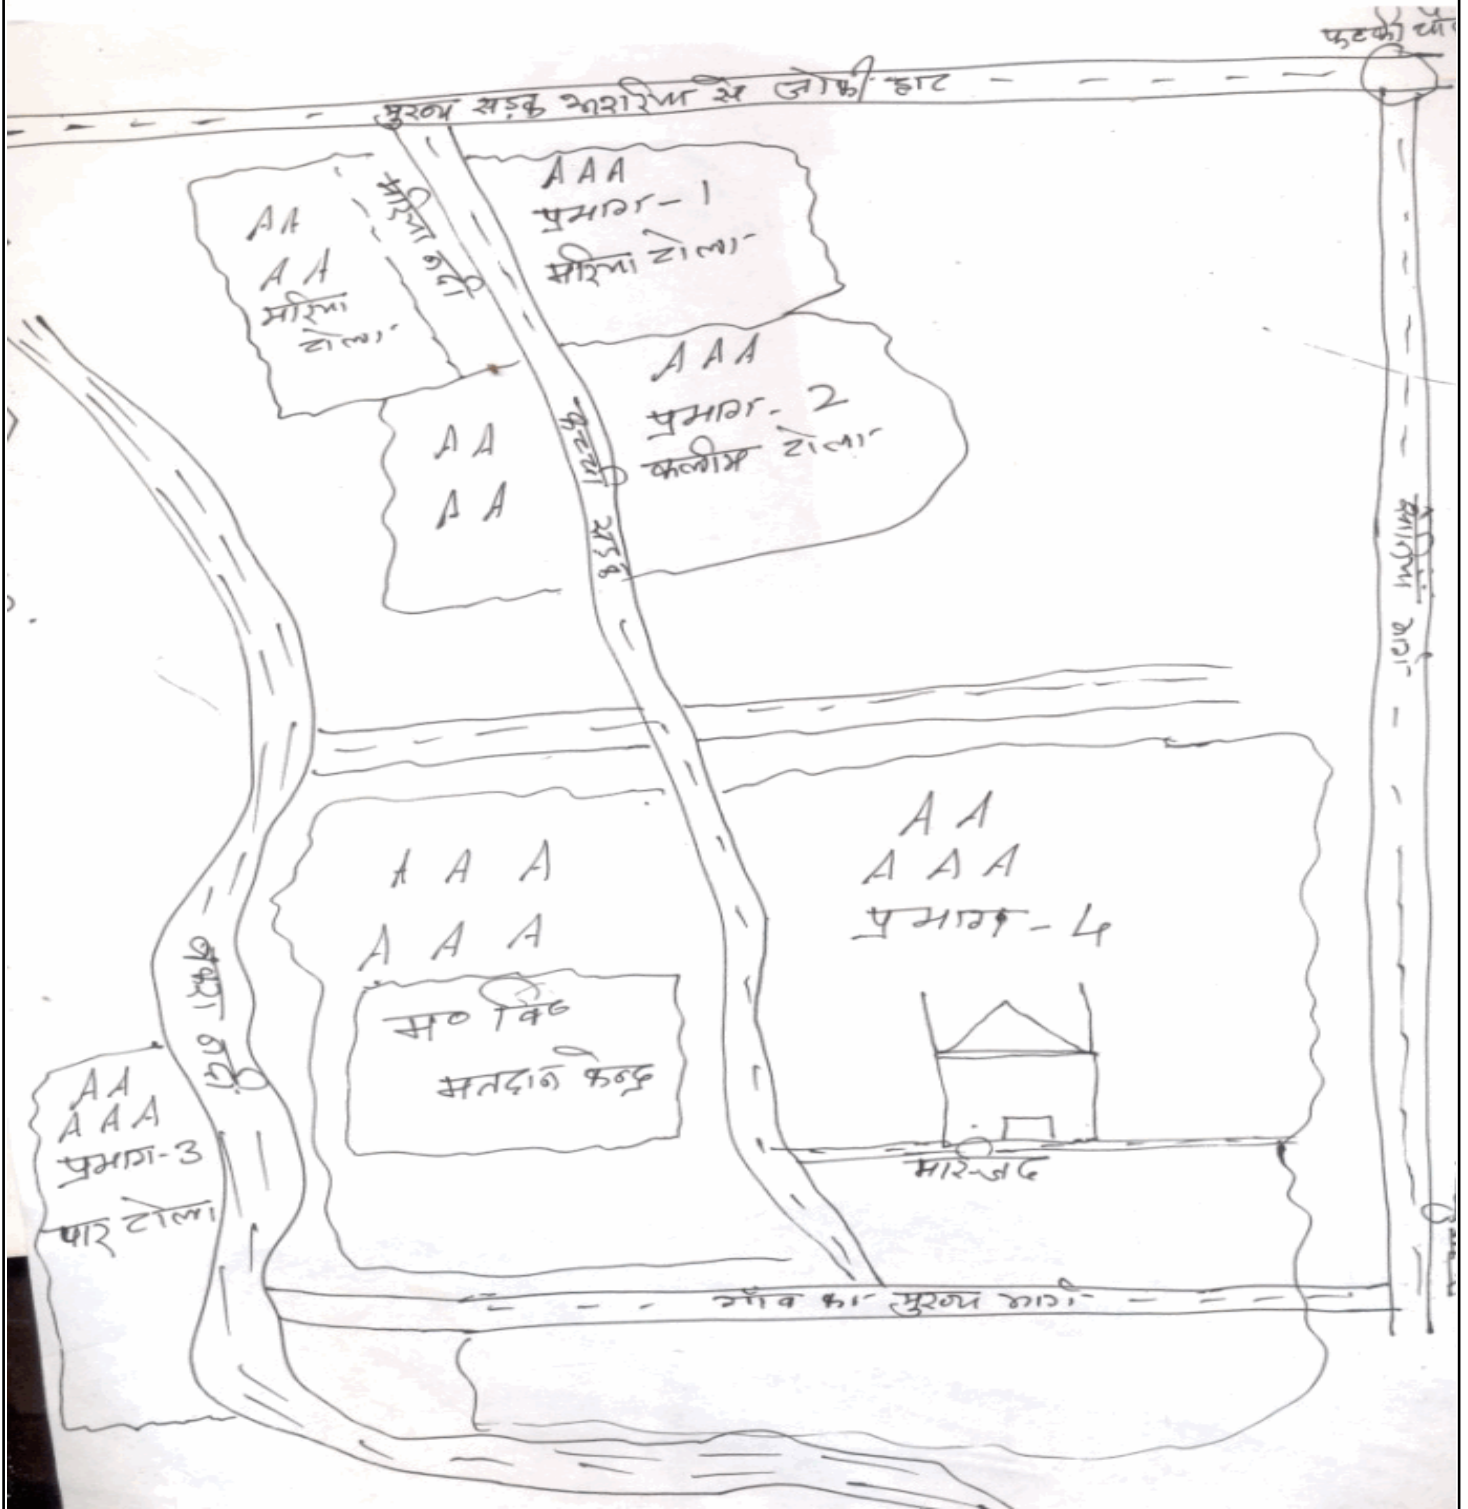 मुख्य सड़क अररिया से जोकी हाट
AAA
प्रभाग-1
मरिया टोला
AA
AA
मरिया
टोला
मरिया नदी
AAA
प्रभाग-2
कलीम टोला
AA
AA
कच्ची सड़क
मार्ग
AA
AAA
प्रभाग-4
A A A
A A A
म० वि०
मतदान केन्द्र
बकरा नदी
AA
AAA
प्रभाग-3
पार टोला
मस्जिद
गाँव का मुख्य मार्ग